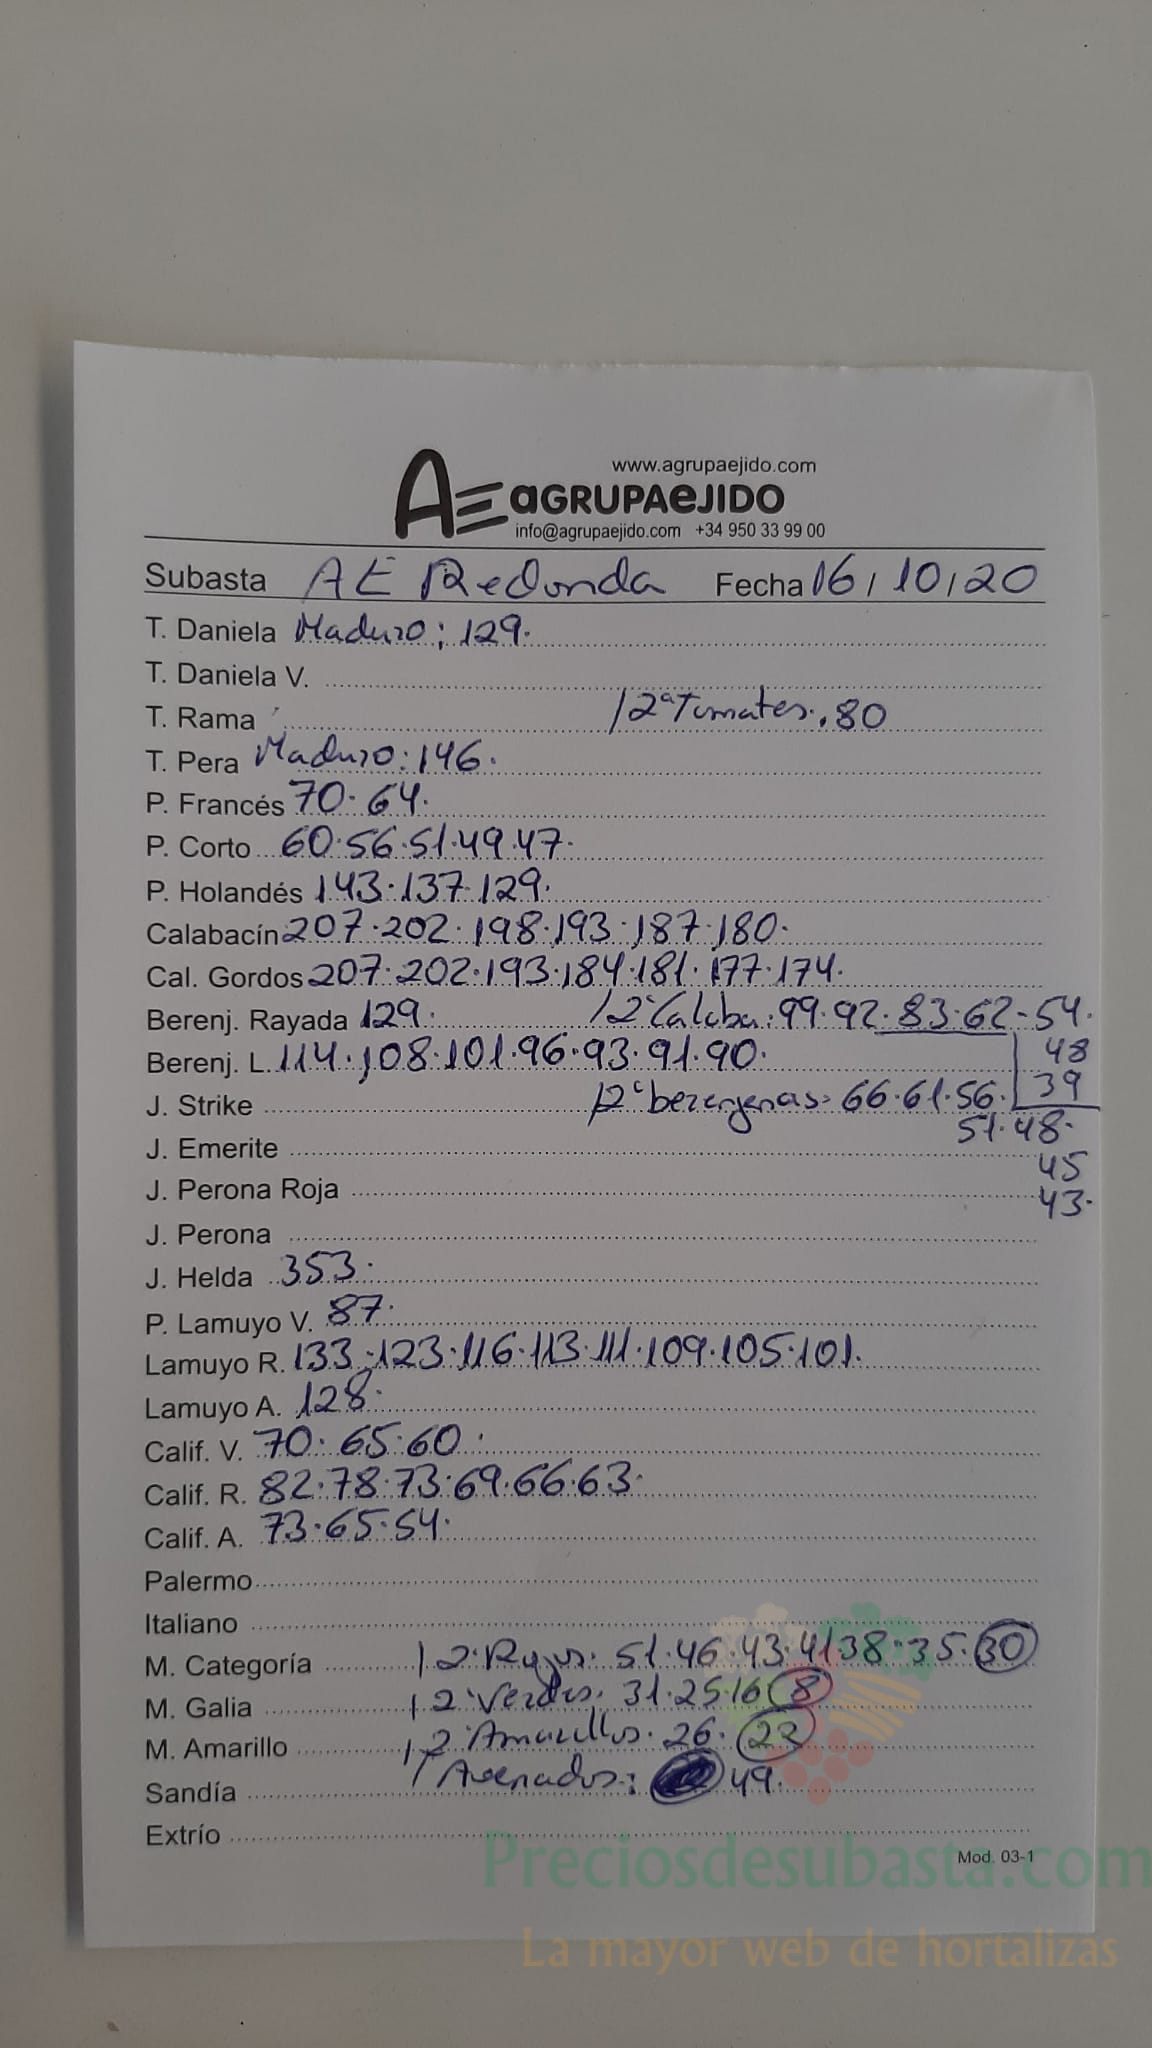 www.agrupaejido.com
AE aGRUPAeJIDO
info@agrupaejido.com +34 950 33 99 00
Subasta AE Redonda Fecha 16/10/20
T. Daniela Maduro: 129.
T. Daniela V.
T. Rama / 2ª Tomates. 80
T. Pera Maduro: 146.
P. Francés 70. 64.
P. Corto 60.56.51.49.47.
P. Holandés 143.137.129.
Calabacín 207.202.198.193.187.180.
Cal. Gordos 207.202.193.184.181.177.174.
Berenj. Rayada 129. / 2ª Calaba: 99.92.83.62-54.
48
Berenj. L. 114.108.101.96.93.91.90.
39
J. Strike / 2ª berenjenas: 66.61.56.
51.48.
J. Emerite
45
J. Perona Roja
43.
J. Perona
J. Helda 353.
P. Lamuyo V. 87.
Lamuyo R. 133.123.116.113.111.109.105.101.
Lamuyo A. 128.
Calif. V. 70.65.60.
Calif. R. 82.78.73.69.66.63.
Calif. A. 73.65.54.
Palermo
Italiano
M. Categoría / 2ª Rojos. 51.46.43.41.38.35.30
M. Galia / 2ª Verdes. 31.25.16 8
M. Amarillo / 2ª Amarillos. 26. 22
Sandía / Asenados: 49.
Extrío
Mod. 03-1
Preciosdesubasta.com
La mayor web de hortalizas